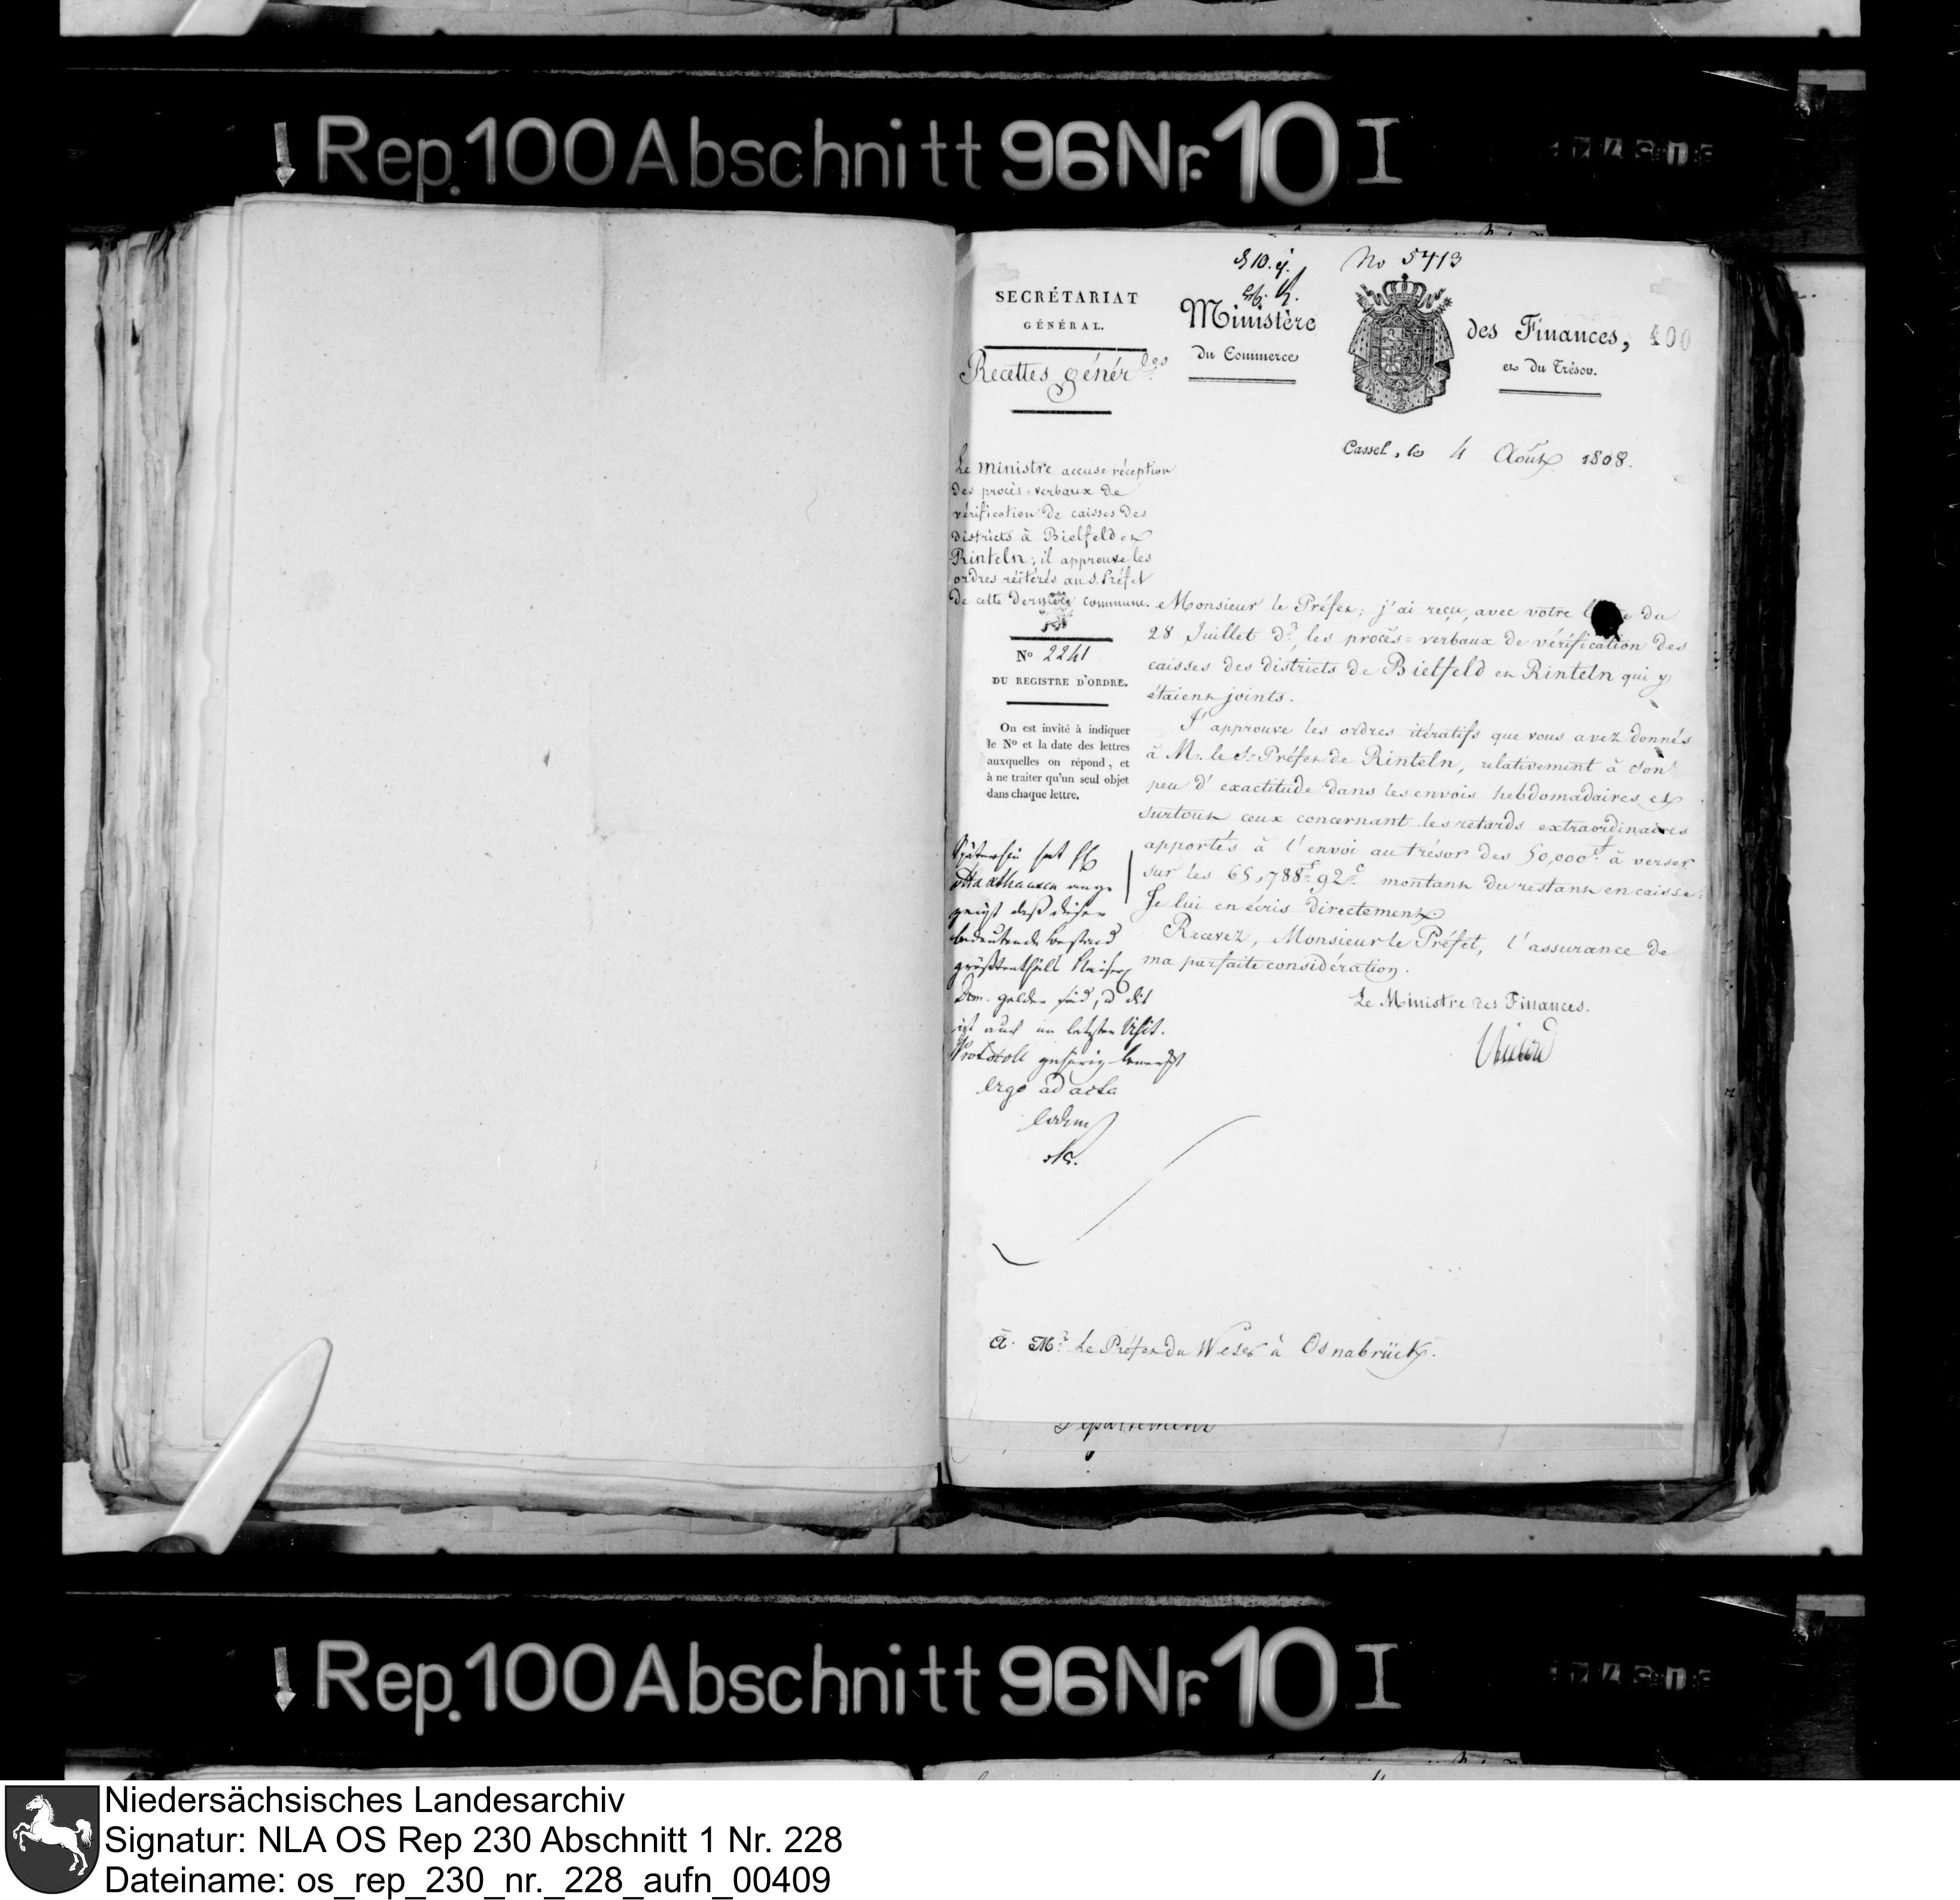 Rep. 100 Abschnitt 96 Nr. 10 I
No 5413
SECRÉTARIAT
GÉNÉRAL.
Recettes génér.les
Ministère
du Commerce
des Finances,
et du Trésor.
400
Cassel, le 4 Août 1808.
Le Ministre accuse réception
des procès-verbaux de
vérification de caisses des
districts à Bielfeld et
Rinteln; il approuve les
ordres réitérés au S. Préfet
de cette dernière commune.
N° 2241
DU REGISTRE D'ORDRE.
On est invité à indiquer
le N° et la date des lettres
auxquelles on répond, et
à ne traiter qu'un seul objet
dans chaque lettre.
Monsieur le Préfet; j'ai reçu, avec votre du
28 Juillet d.r, les procès=verbaux de vérification des
caisses des districts de Bielfeld et Rinteln qui y
étaient joints.
J'approuve les ordres itératifs que vous avez donnés
à M. le S. Préfet de Rinteln, relativement à son
peu d'exactitude dans les envois hebdomadaires et
surtout ceux concernant les retards extraordinaires
apportés à l'envoi au trésor des 50,000.f à verser
sur les 65,788.f 92.c montant du restant en caisse.
Je lui en écris directement.
Recevez, Monsieur le Préfet, l'assurance de
ma parfaite considération.
Le Ministre des Finances.
Späterhin hat
Haxthausen ange
zeigt daß dieser
bedeutende Bestand
größtentheils Kaiserl
Dom. gelder sind, u dit
ist auch im letzten Visit.
Protocoll gehörig bemerkt
ergo ad acta
eodem
À M.r Le Préfet du Weser à Osnabrück.
Département
Rep. 100 Abschnitt 96 Nr. 10 I
Niedersächsisches Landesarchiv
Signatur: NLA OS Rep 230 Abschnitt 1 Nr. 228
Dateiname: os_rep_230_nr._228_aufn_00409